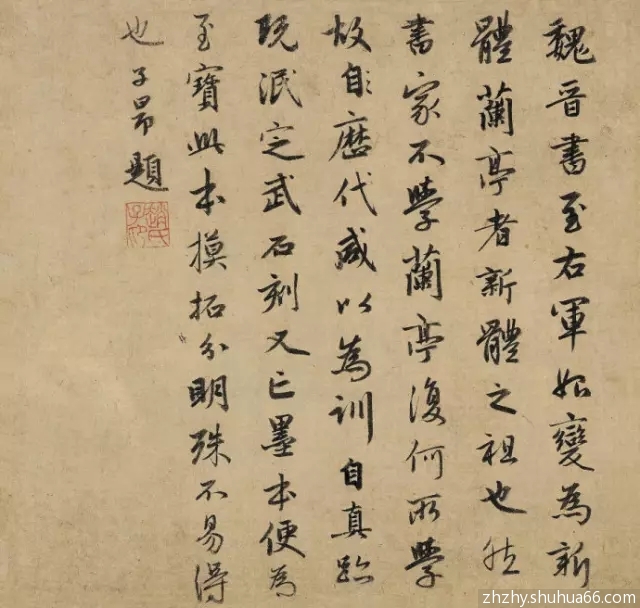 魏晋書至右軍始變為新
體蘭亭者新體之祖也然
書家不學蘭亭復何所學
故自歷代咸以為訓自真跡
既泯定武石刻又亡墨本便為
至寶此本摸拓分明殊不易得
也子昂題
趙氏子昂
zhzhy.shuhua66.com